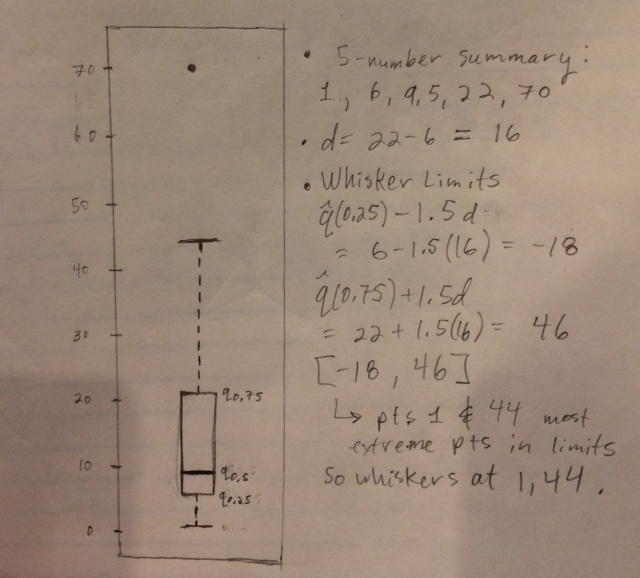 70
60
50
40
30
20
10
0
q0.75
q0.5
q0.25
• 5-number summary:
1, 6, 9.5, 22, 70
• d = 22-6 = 16
• Whisker Limits
q̂(0.25) - 1.5d
= 6 - 1.5(16) = -18
q̂(0.75) + 1.5d
= 22 + 1.5(16) = 46
[-18, 46]
↳ pts 1 & 44 most
extreme pts in limits
So whiskers at 1, 44.